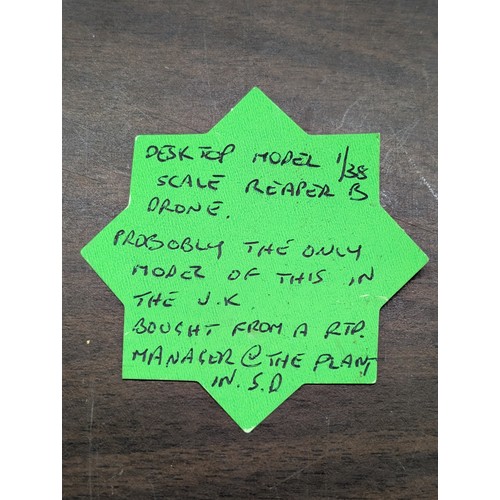 DESKTOP MODEL 1/38
SCALE REAPER B
DRONE.
PROBOBLY THE ONLY
MODEL OF THIS IN
THE U.K.
BOUGHT FROM A RTD.
MANAGER @ THE PLANT
IN. S.D